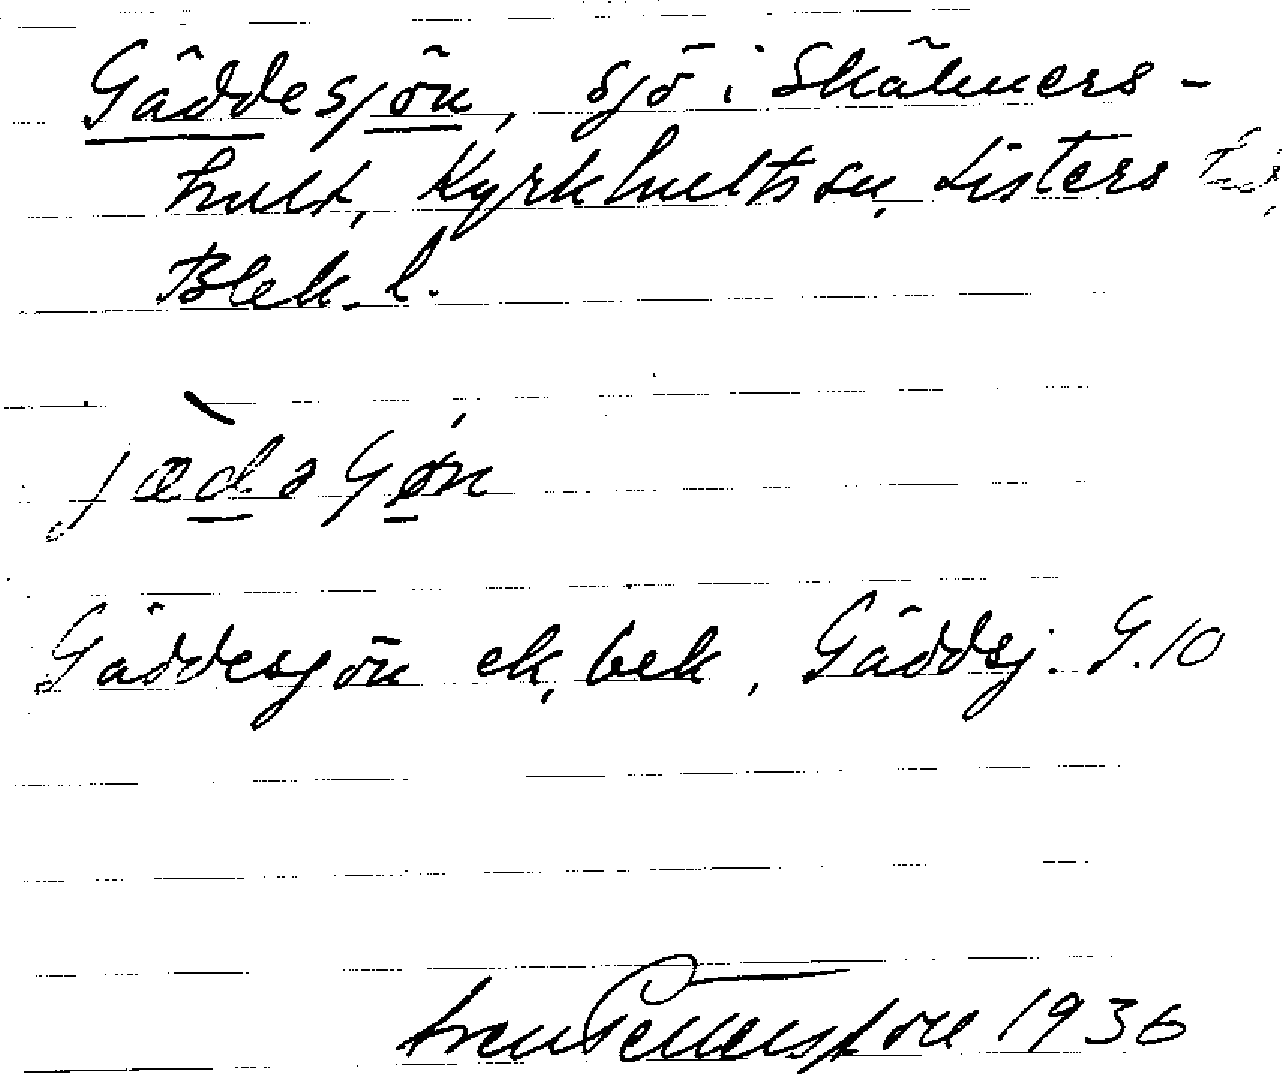 Gäddesjön, sjö i Skälmers-
hult, Kyrkhults sn, Listers hd,
Blek. l.
jædəʃøn
Gäddesjön ek. bek., Gäddsj. G.10
Pettersson 1936